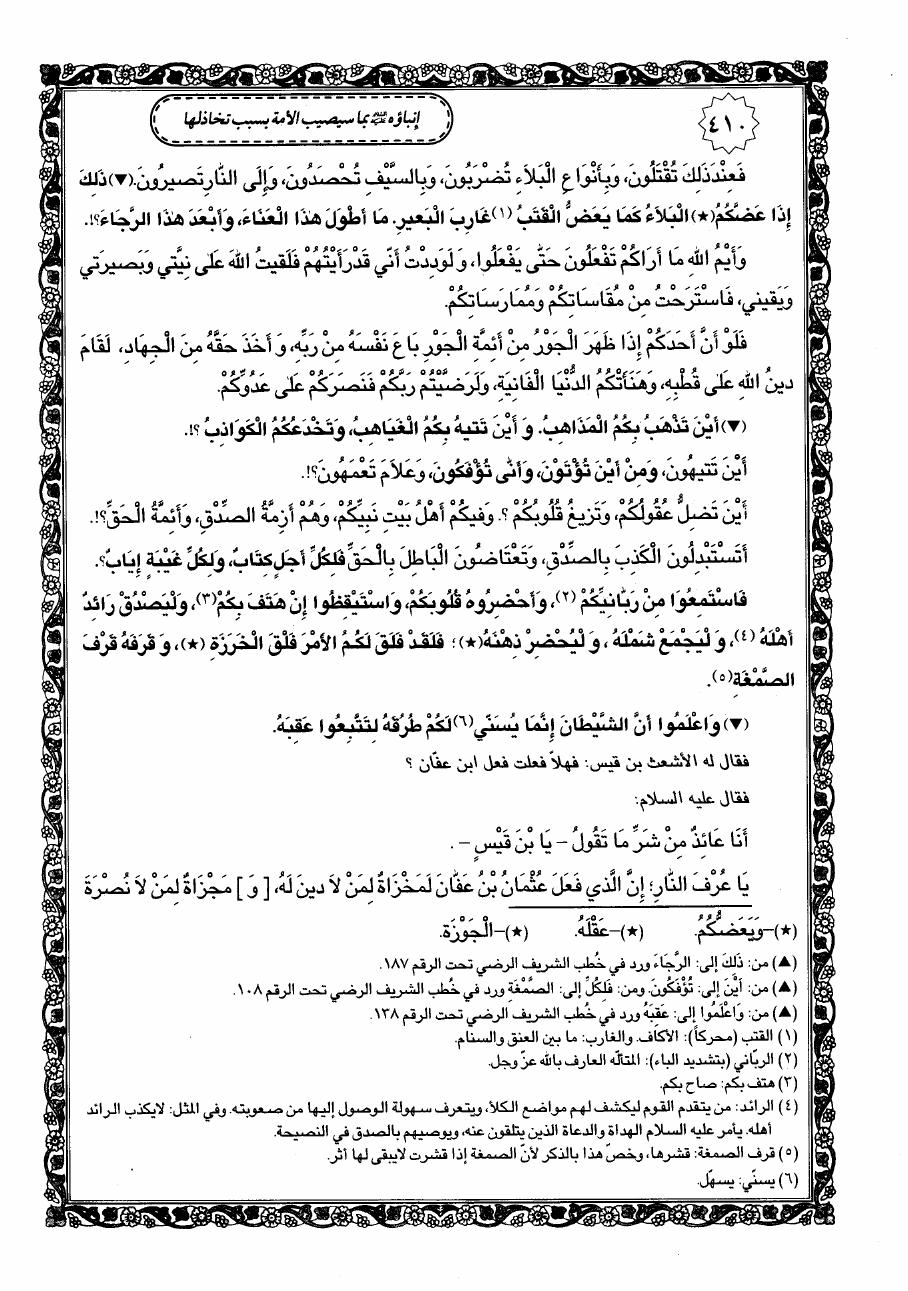 ٤١٠
إنباؤه بما سيصيب الأمة بسبب تخاذلها
فَعِنْدَ ذَلِكَ تُقْتَلُونَ، وَبِأَنْوَاعِ الْبَلاَءِ تُضْرَبُونَ، وَبِالسَّيْفِ تُحْصَدُونَ، وَإِلَى النَّارِ تَصيرُونَ. (▼) ذَلِكَ
إِذَا عَضَّكُمُ (★) الْبَلاَءُ كَمَا يَعَضُّ الْقَتَبُ (١) غَارِبَ الْبَعيرِ. مَا أَطْوَلَ هَذَا الْعَنَاءَ، وَأَبْعَدَ هَذَا الرَّجَاءَ؟!.
وَأَيْمُ اللهِ مَا أَرَاكُمْ تَفْعَلُونَ حَتّٰى يَفْعَلُوا، وَلَوَدِدْتُ أَنّي قَدْ رَأَيْتُهُمْ فَلَقيتُ اللهَ عَلىٰ نِيَّتي وَبَصيرَتي
وَيَقيني، فَاسْتَرَحْتُ مِنْ مُقَاسَاتِكُمْ وَمُمَارَسَاتِكُمْ.
فَلَوْ أَنَّ أَحَدَكُمْ إِذَا ظَهَرَ الْجَوْرُ مِنْ أَئِمَّةِ الْجَوْرِ بَاعَ نَفْسَهُ مِنْ رَبِّهِ، وَأَخَذَ حَقَّهُ مِنَ الْجِهَادِ، لَقَامَ
دينُ اللهِ عَلىٰ قُطْبِهِ، وَهَنَأَتْكُمُ الدُّنْيَا الْفَانِيَةِ، وَلَرَضَيْتُمْ رَبَّكُمْ فَنَصَرَكُمْ عَلىٰ عَدُوِّكُمْ.
(▼) أَيْنَ تَذْهَبُ بِكُمُ الْمَذَاهِبُ. وَأَيْنَ تَتيهُ بِكُمُ الْغَيَاهِبُ، وَتَخْدَعُكُمُ الْكَوَاذِبُ ؟!.
أَيْنَ تَتيهُونَ، وَمِنْ أَيْنَ تُؤْتَوْنَ، وَأَنّٰى تُؤْفَكُونَ، وَعَلاَمَ تَعْمَهُونَ؟!.
أَيْنَ تَضِلُّ عُقُولُكُمْ، وَتَزيغُ قُلُوبُكُمْ ؟. وَفيكُمْ أَهْلُ بَيْتِ نَبِيِّكُمْ، وَهُمْ أَزِمَّةُ الصِّدْقِ، وَأَئِمَّةُ الْحَقِّ؟!.
أَتَسْتَبْدِلُونَ الْكَذِبَ بِالصِّدْقِ، وَتَعْتَاضُونَ الْبَاطِلَ بِالْحَقِّ فَلِكُلِّ أَجَلٍ كِتَابٌ، وَلِكُلِّ غَيْبَةٍ إِيَابٌ؟.
فَاسْتَمِعُوا مِنْ رَبَّانِيِّكُمْ (٢)، وَأَحْضِرُوهُ قُلُوبَكُمْ، وَاسْتَيْقِظُوا إِنْ هَتَفَ بِكُمْ (٣)، وَلْيَصْدُقْ رَائِدٌ
أَهْلَهُ (٤)، وَلْيَجْمَعْ شَمْلَهُ، وَلْيُحْضِرْ ذِهْنَهُ (★)؛ فَلَقَدْ فَلَقَ لَكُمُ الأَمْرَ فَلْقَ الْخَرَزَةِ (★)، وَقَرَفَهُ قَرْفَ
الصَّمْغَةِ (٥).
(▼) وَاعْلَمُوا أَنَّ الشَّيْطَانَ إِنَّمَا يُسَنّي (٦) لَكُمْ طُرُقَهُ لِتَتَّبِعُوا عَقِبَهُ.
فقال له الأشعث بن قيس: فهلاّ فعلت فعل ابن عفّان ؟
فقال عليه السلام:
أَنَا عَائِذٌ مِنْ شَرِّ مَا تَقُولُ - يَا بْنَ قَيْسٍ - .
يَا عُرْفَ النَّارِ؛ إِنَّ الَّذي فَعَلَ عُثْمَانُ بْنُ عَفَّانَ لَمَخْزَاةٌ لِمَنْ لاَ دينَ لَهُ، [وَ] مَجْزَاةٌ لِمَنْ لاَ نُصْرَةَ
(★)-وَيَعَضُّكُمُ. (★)-عَقْلَهُ. (★)-الْجَوْزَةِ.
(▲) من: ذَلِكَ إلى: الرَّجَاءَ ورد في خُطب الشريف الرضي تحت الرقم ١٨٧.
(▲) من: أَيْنَ إلى: تُؤْفَكُونَ. ومن: فَلِكُلِّ إلى: الصَّمْغَةِ ورد في خُطب الشريف الرضي تحت الرقم ١٠٨.
(▲) من: وَاعْلَمُوا إلى: عَقِبَهُ ورد في خُطب الشريف الرضي تحت الرقم ١٣٨.
(١) القتب (محركاً): الأكاف. والغارب: ما بين العنق والسنام.
(٢) الربّاني (بتشديد الباء): المتألّه العارف بالله عزّ وجل.
(٣) هتف بكم: صاح بكم.
(٤) الرائد: من يتقدم القوم ليكشف لهم مواضع الكلأ، ويتعرف سهولة الوصول إليها من صعوبته. وفي المثل: لايكذب الرائد
أهله. يأمر عليه السلام الهداة والدعاة الذين يتلقون عنه، ويوصيهم بالصدق في النصيحة.
(٥) قرف الصمغة: قشرها، وخصّ هذا بالذكر لأنّ الصمغة إذا قشرت لايبقى لها أثر.
(٦) يسنّي: يسهّل.